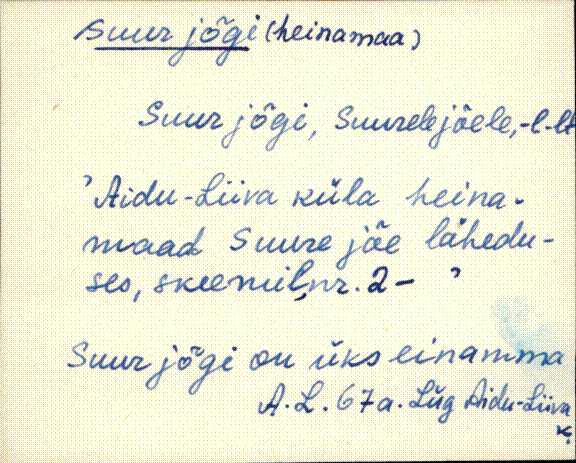 Suur jõgi (heinamaa)
Suur jõgi, Suurele jõele, -l -lt
'Aidu-Liiva küla heina-
maad Suure jõe lähedu-
ses, skeemil, nr. 2 - '
Suur jõgi on üks einamma
A.L. 67 a. Lüg Aidu-Liiva
k.